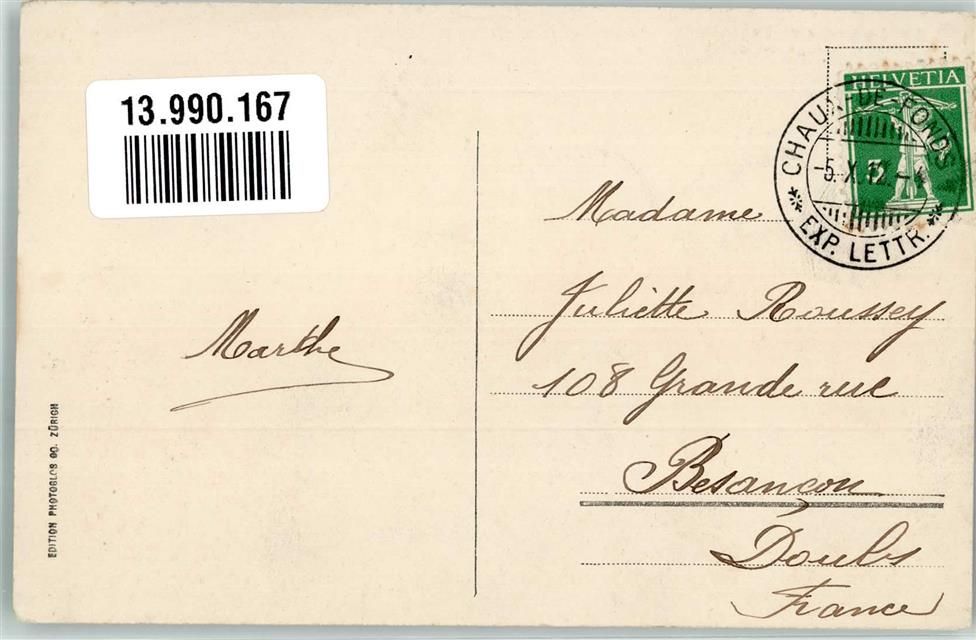 13.990.167
HELVETIA
CHAUX-DE-FONDS
-5.X.12.-
EXP. LETTR.
Madame
Juliette Roussey
108 Grande rue
Besançon
Doubs
France
Marthe
EDITION PHOTOGLOB CO. ZÜRICH